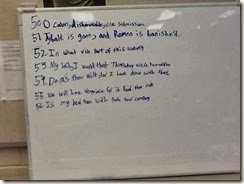 50. O calm, dishonorable, vile submission
51. Tybalt is gone, and Romeo is banished.
52. In what vile part of this anatomy
53. My lord, I would that Thursday were tomorrow
54. Do as thou wilt, for I have done with thee
55. We will have vengeance for it fear thou not
56. Is my father